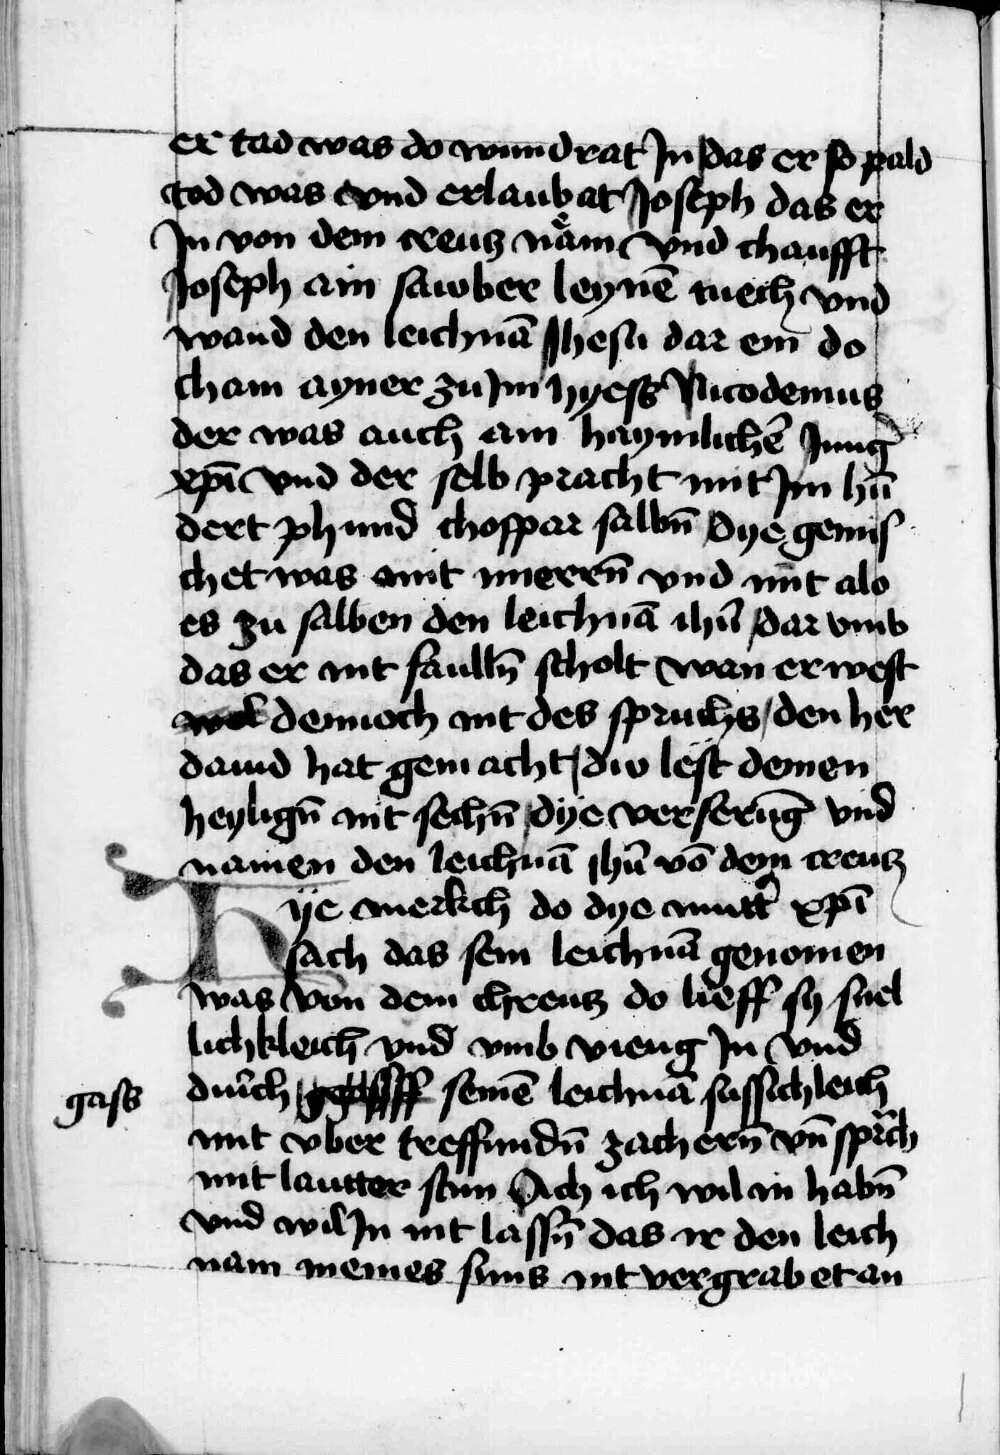 er tad was do wundrat Jn das er so pald
tod was vnd erlaubat Joseph das er
Jn von dem creutz nam vnd chaufft
Joseph ain sawber leynē tuech vnd
wand den leichnā Jhesu dar ein do
cham ayner zu Jm hyess Nicodemus
der was auch ain haymlichē Jung
xpī vnd der selb pracht mit Jm hū
dert phund chospar salbn̄ dye gemis
chet was mit mierrn̄ vnd mit alo
es zu salben den leichnā ihū dar vmb
das er nit faulln̄ scholt wan er west
wol dennoch nit des spruchs den her
dauid hat gemacht dw lest deinen
heylign̄ nit sechn̄ dye verserūg vnd
namen den leichnā ihū vō dem creutz
Hye merkch do dye mutt xpī
sach das sein leichnā genomen
was von dem chreutz do lieff sy snel
lichkleich vnd vmb vieng Jn vnd
durch seinē leichnā sussichleich
gass
mit vber treffundn̄ zachern̄ vn̄ sprach
mit lautter stim Ach ich wil in habn̄
vnd wil Jn nit lassn̄ das ir den leich
nam meines suns nit vergrabet an